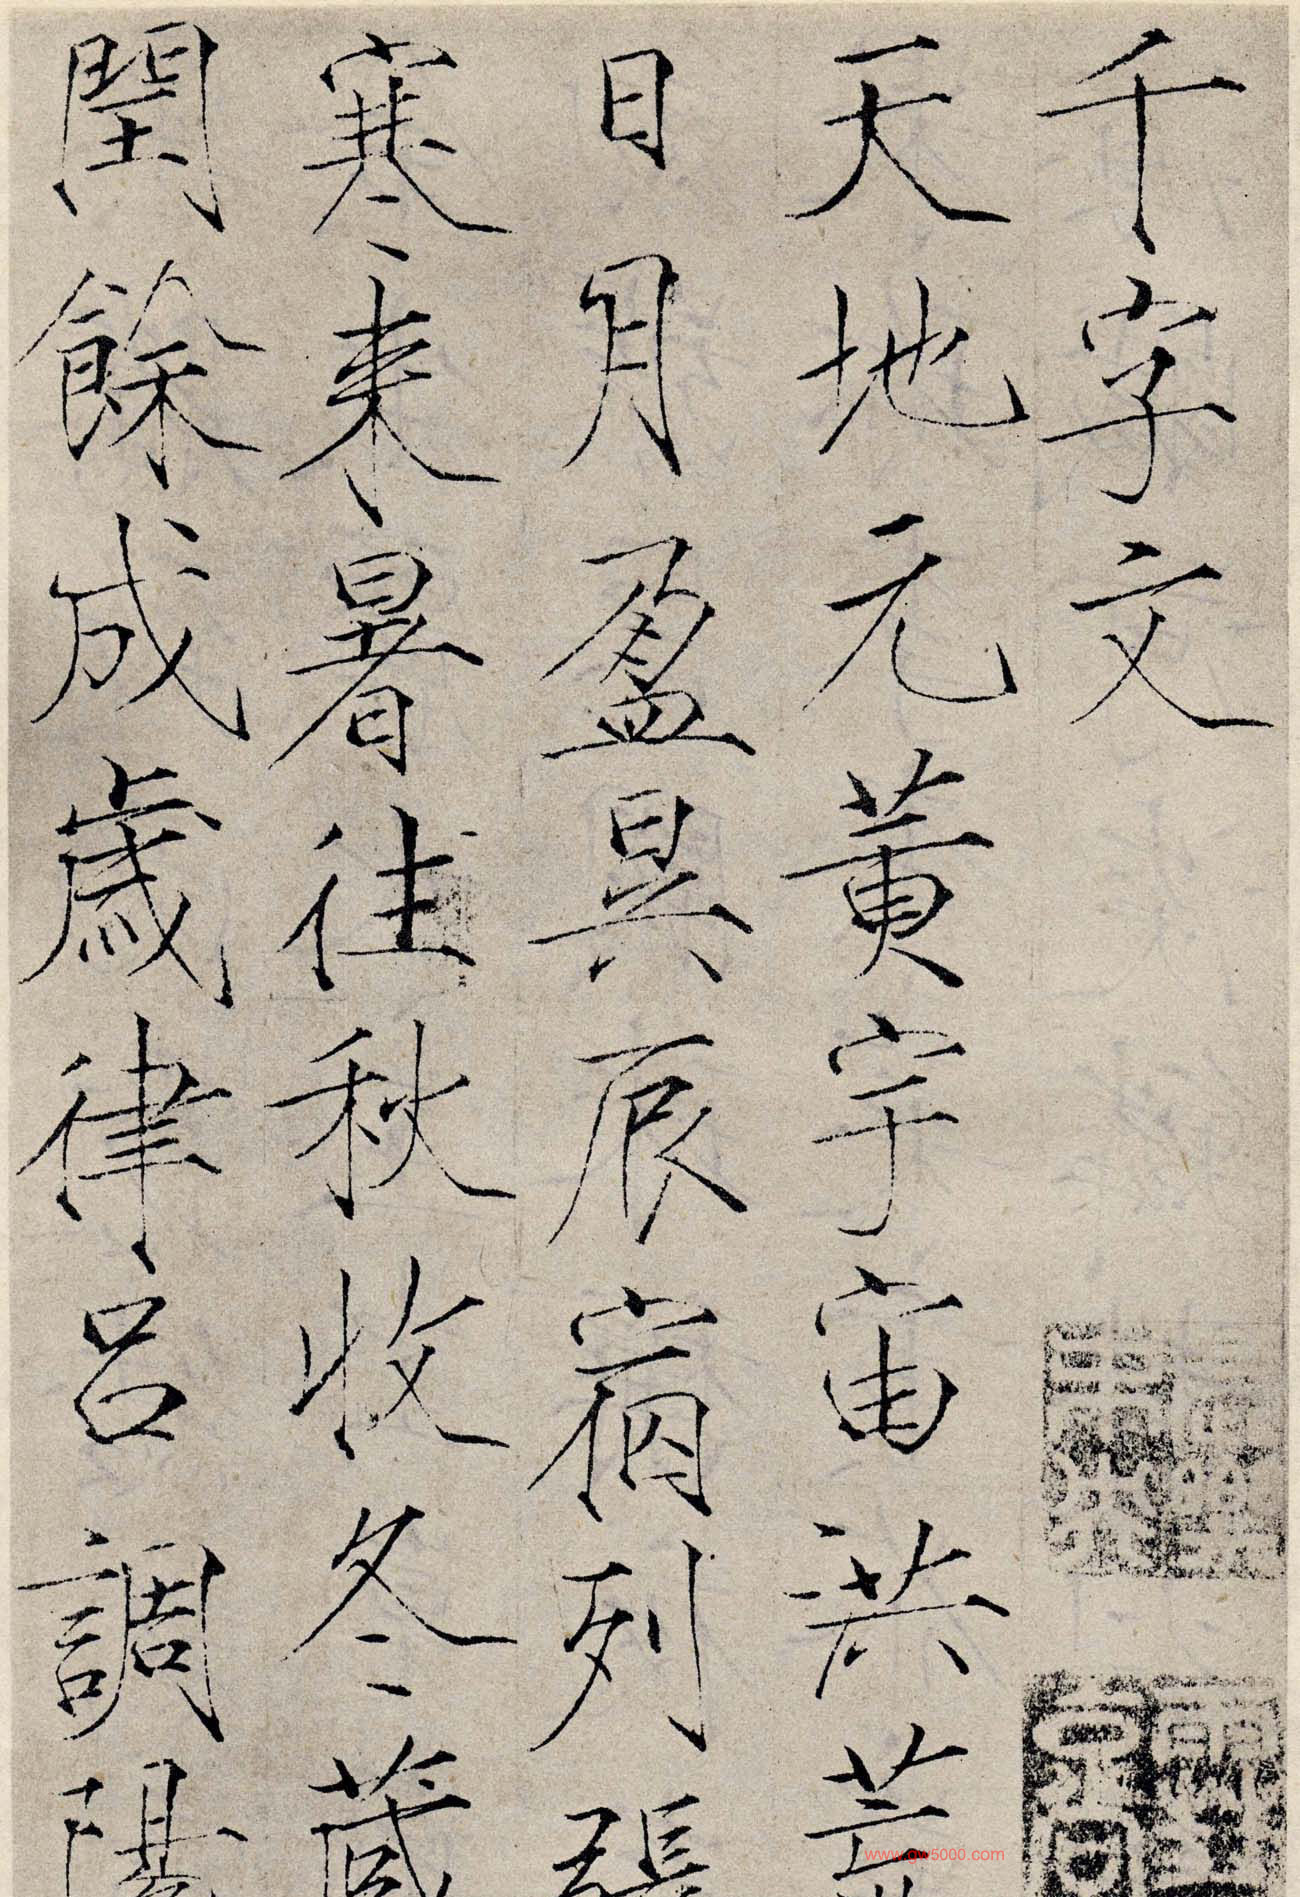 千字文
天地元黄宇宙洪荒
日月盈昃辰宿列張
寒来暑往秋收冬藏
閏餘成歲律呂調陽
www.gw5000.com